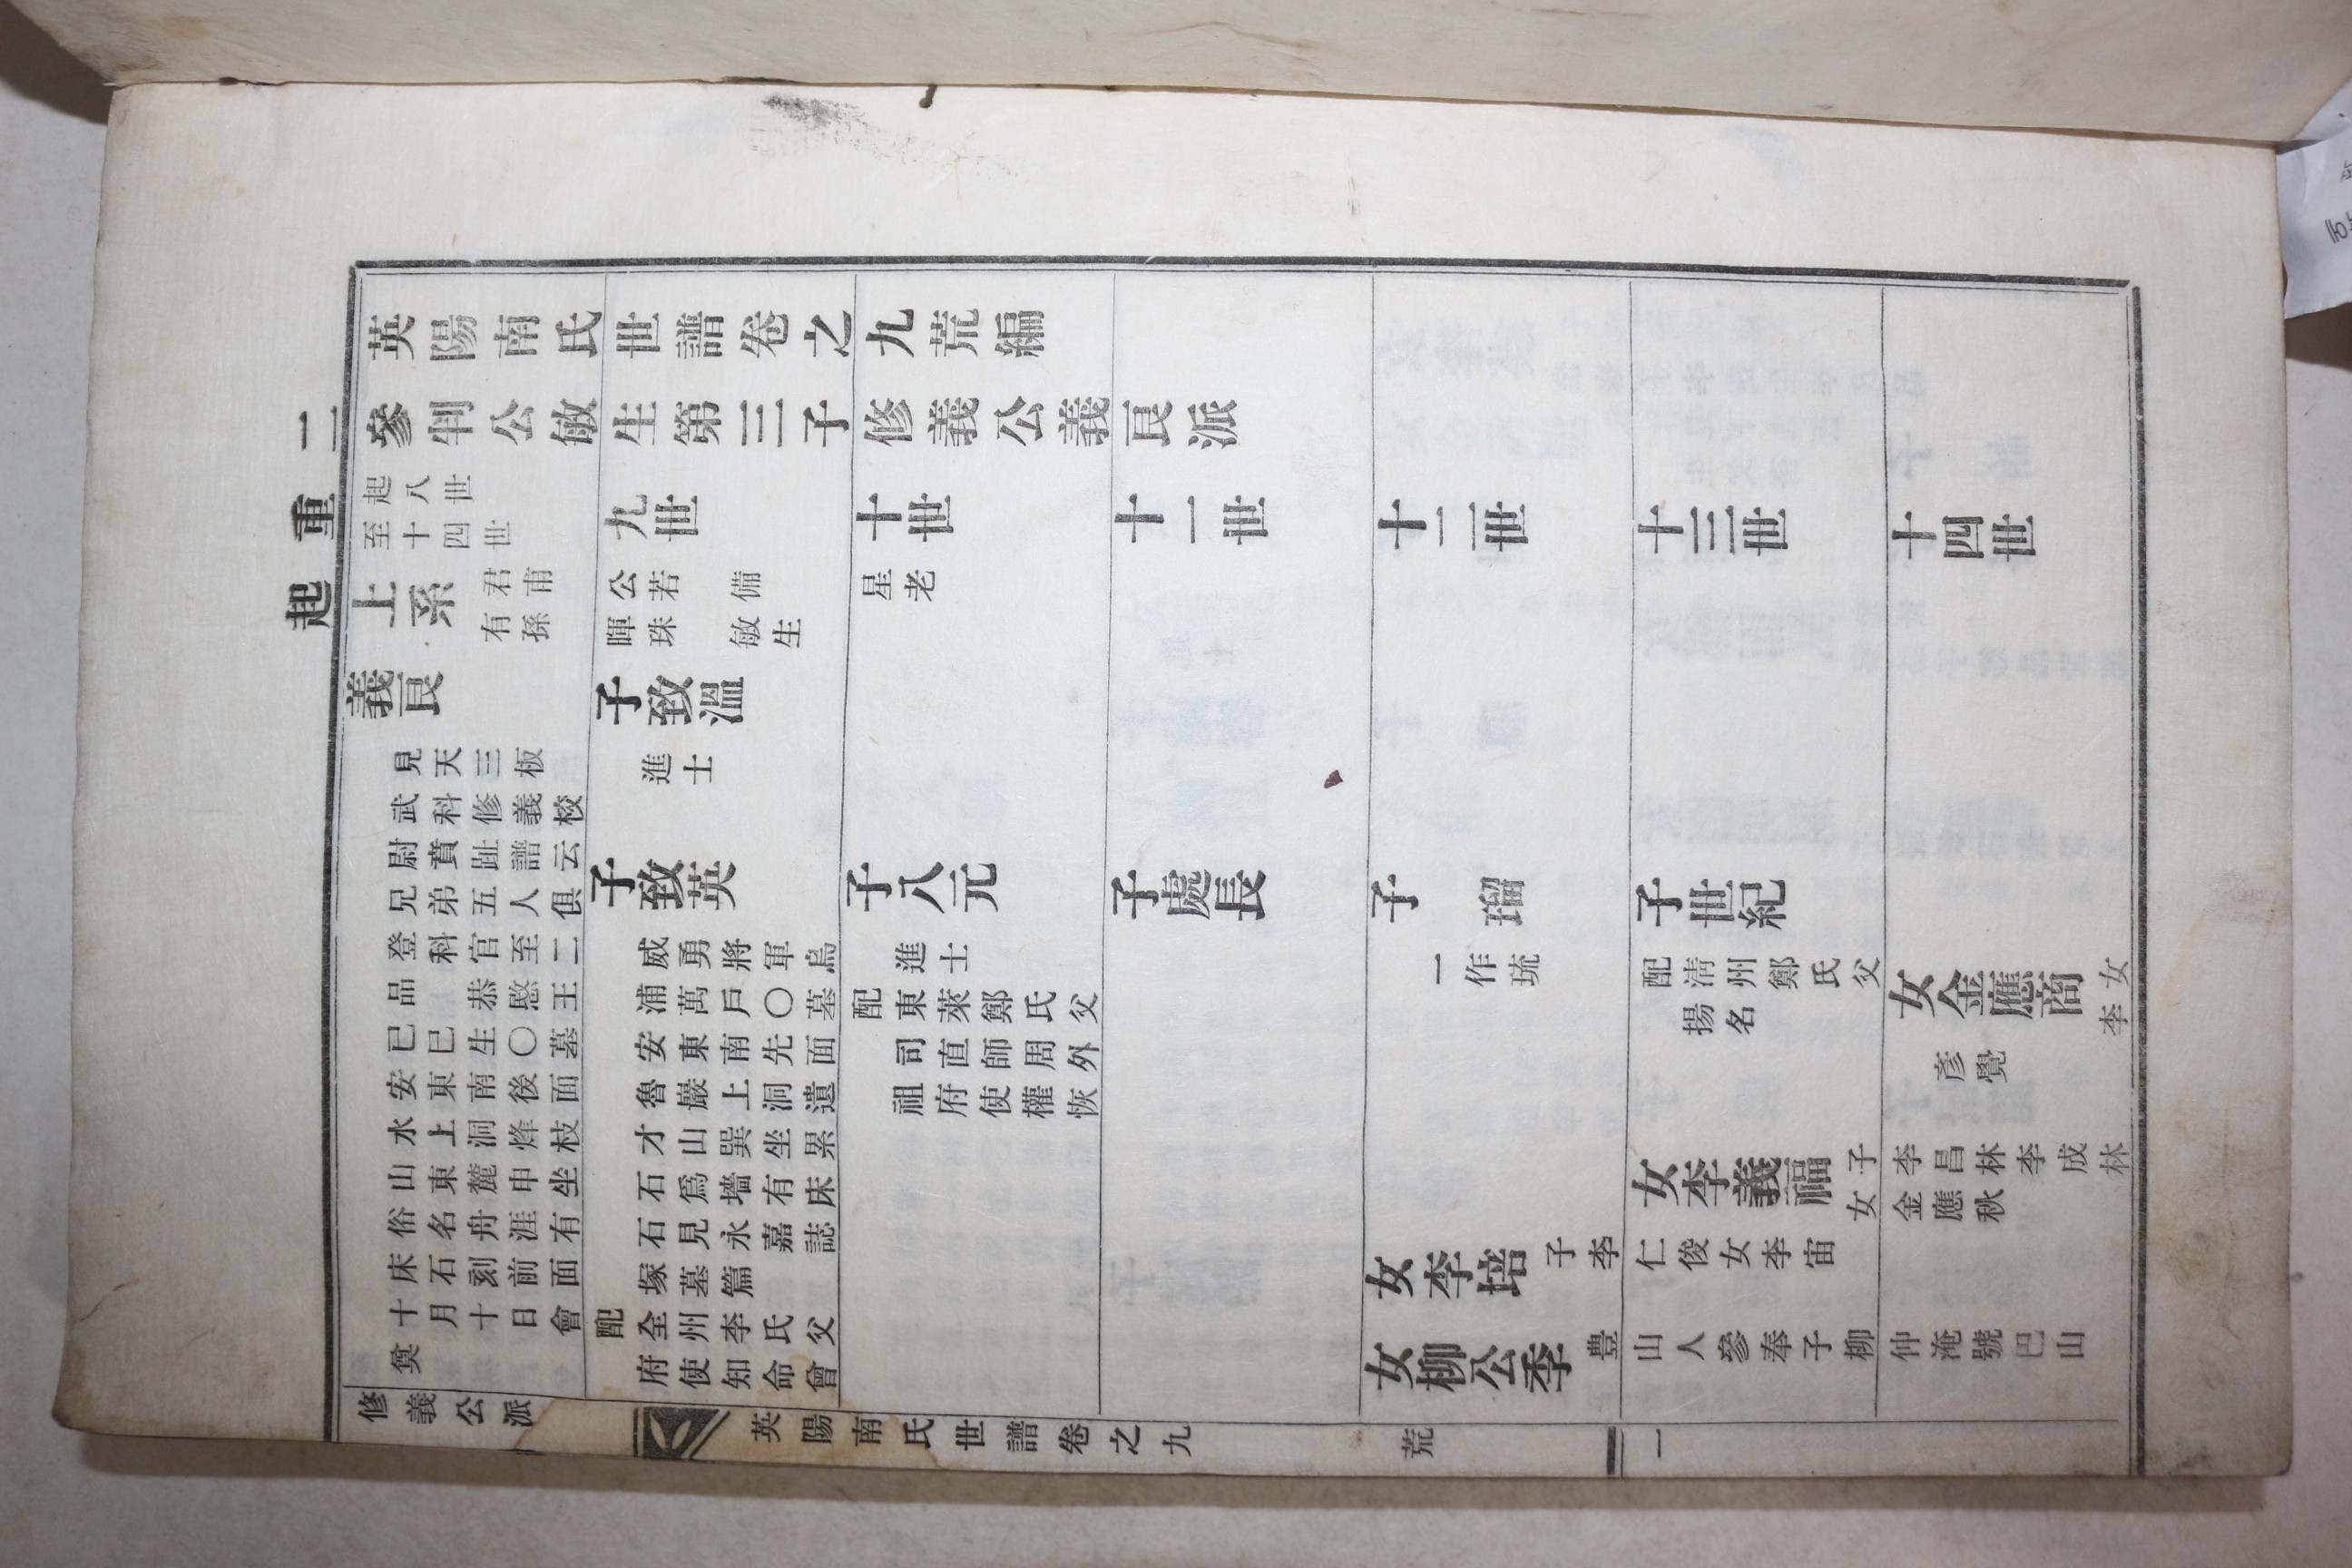 英陽南氏世譜卷之九荒編
參判公敏生第三子修義公義艮派
起八世
至十四世
九世
十世
十一世
十二世
十三世
十四世
二重起
上系
君甫
有孫
公若 備
暉珠 敏生
星老
義艮
見天三板
武科修義校
尉賁趾譜云
兄弟五人俱
登科官至二
品恭愍王
已巳生〇墓
安東南後面
水上洞烽枝
山東麓申坐
俗名舟涯有
床石刻前面
十月十日會
奠
子致溫
進士
子致英
威勇將軍烏
浦萬戶〇墓
安東南先面
魯巖上洞遺
才山巽坐累
石爲墻有床
石見永嘉誌
塚墓篇
配全州李氏父
府使知命曾
子八元
進士
配東萊鄭氏父
司直師周外
祖府使權恢
子處長
子瑠
一作琉
子世紀
配清州鄭氏父
揚名
女金應商
女
李彥覺
女李義福
子李昌林李成林
女金應秋
女李培
子李仁俊女李宙
女柳公季
豊山人參奉子柳仲淹號巴山
修義公派
英陽南氏世譜卷之九
荒
一